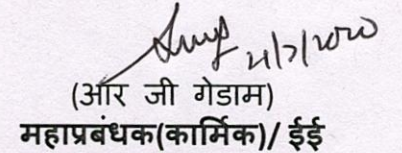 21/7/2020
(आर जी गेडाम)
महाप्रबंधक(कार्मिक)/ ईई